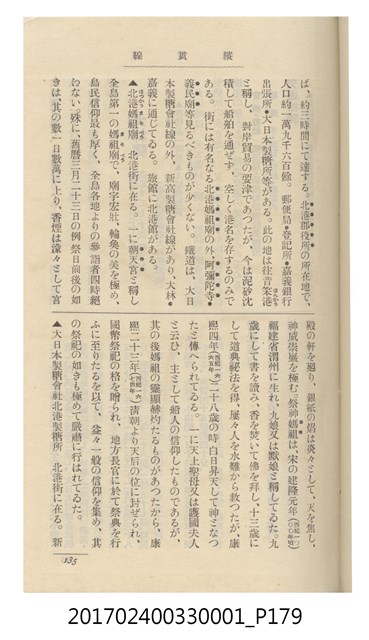 縱貫線
ば、約三時間にて達する。北港郡役所の所在地で、
人口約一萬九千六百餘。郵便局・登記所・嘉義銀行
出張所・大日本製糖所等がある。此の地は往昔笨港
と稱し、對岸貿易の要津であつたが、今は泥砂沈
積して船舶を通ぜず、空しく港名を存するのみで
ある。街には有名なる北港媽祖廟の外、阿彌陀寺・
義民廟等見るべきものが少くない。鐵道は、大日
本製糖會社線の外、新高製糖會社線があり、大林・
嘉義に通じてゐる。旅館に北港館がある。
▲北港媽祖廟 北港街に在る。一に朝天宮と稱し
全島第一の媽祖廟で、廟字宏壯、輪奐の美を極め、
島民信仰最も厚く、全島各地よりの參詣者四時絕
わない。殊に、舊曆三月二十三日の例祭日前後の如
きは、其の數一日數萬に上り、香煙は濛々として宮
殿の軒を廻り、銀紙の焰は炎々として、天を焦し、
神威崇嚴を極む。祭神媽祖は、宋の建隆元年
福建省湄州に生れ、九娘又は默娘と稱してゐた。九
歲にして書を讀み、香を焚いて佛を拜し、十三歲に
して道典祕法を得、屢々人を水難から救つたが、康
熙四年 二十八歲の時白日昇天して神となつ
たと傳へられてゐる。一に天上聖母又は護國夫人
と云ひ、主として船人の信仰したものであるが、
其の後媽祖の靈顯赫灼たるものがあつたから、康
熙二十三年 清朝より天后の位に封ぜられ、
國幣祭祀の格を贈られ、地方長官に於て祭典を行
ふに至りたるを以て、益々一般の信仰を集め、其
の祭祀の如きも極めて嚴肅に行はれてゐた。
▲大日本製糖會社北港製糖所 北港街に在る。新
135
201702400330001_P179